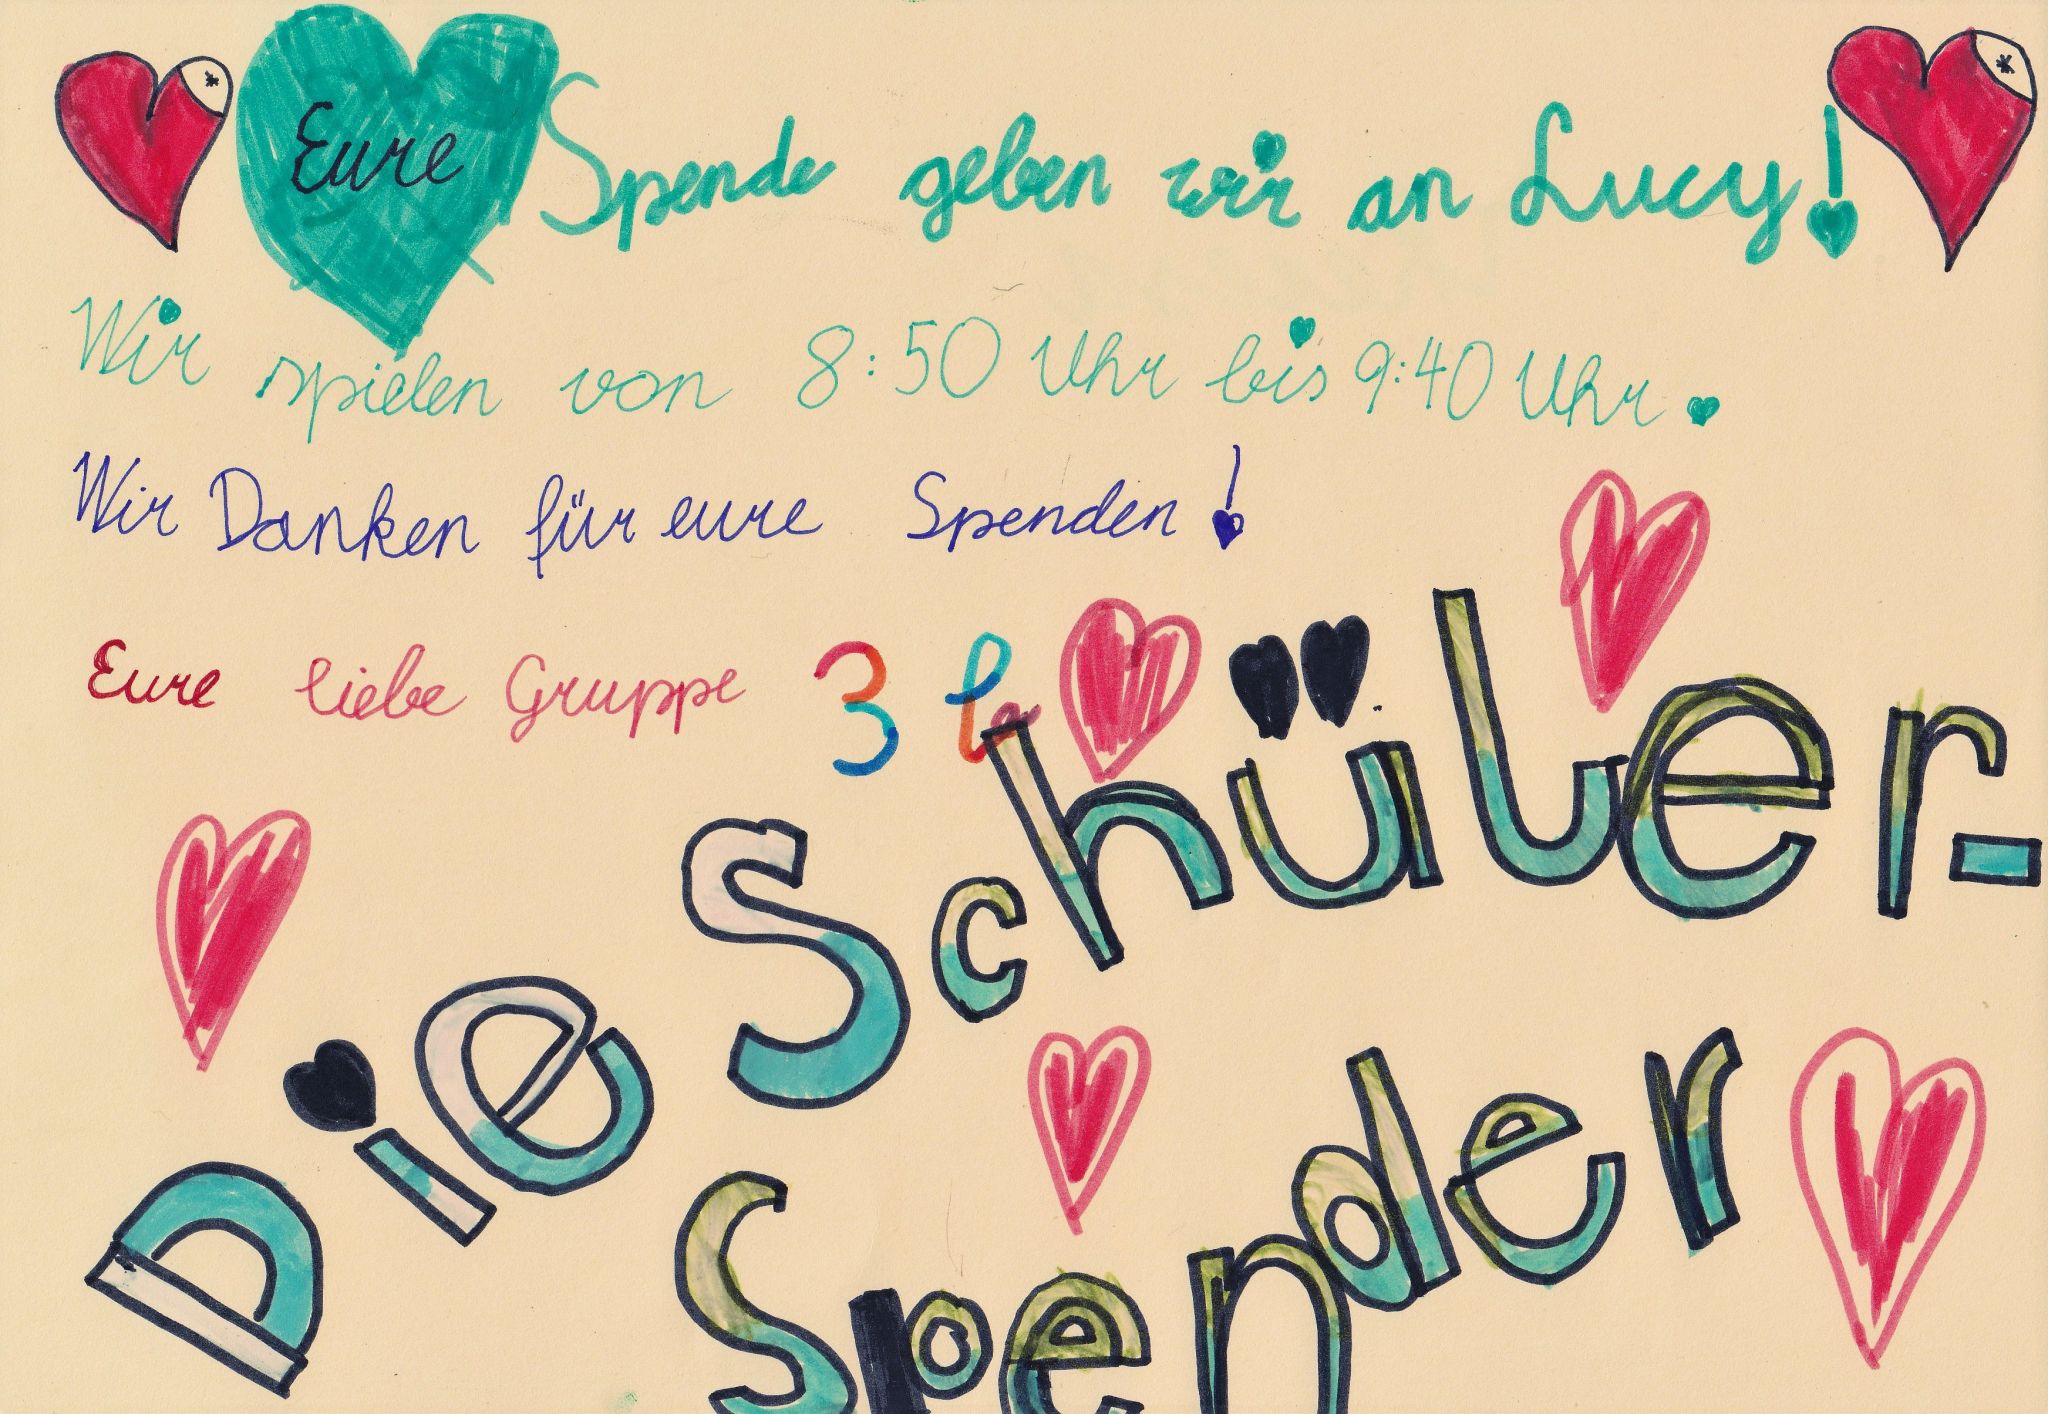 Eure Spende geben wir an Lucy!
Wir spielen von 8:50 Uhr bis 9:40 Uhr.
Wir Danken für eure Spenden!
Eure liebe Gruppe 3
Die Schüler-
Spender